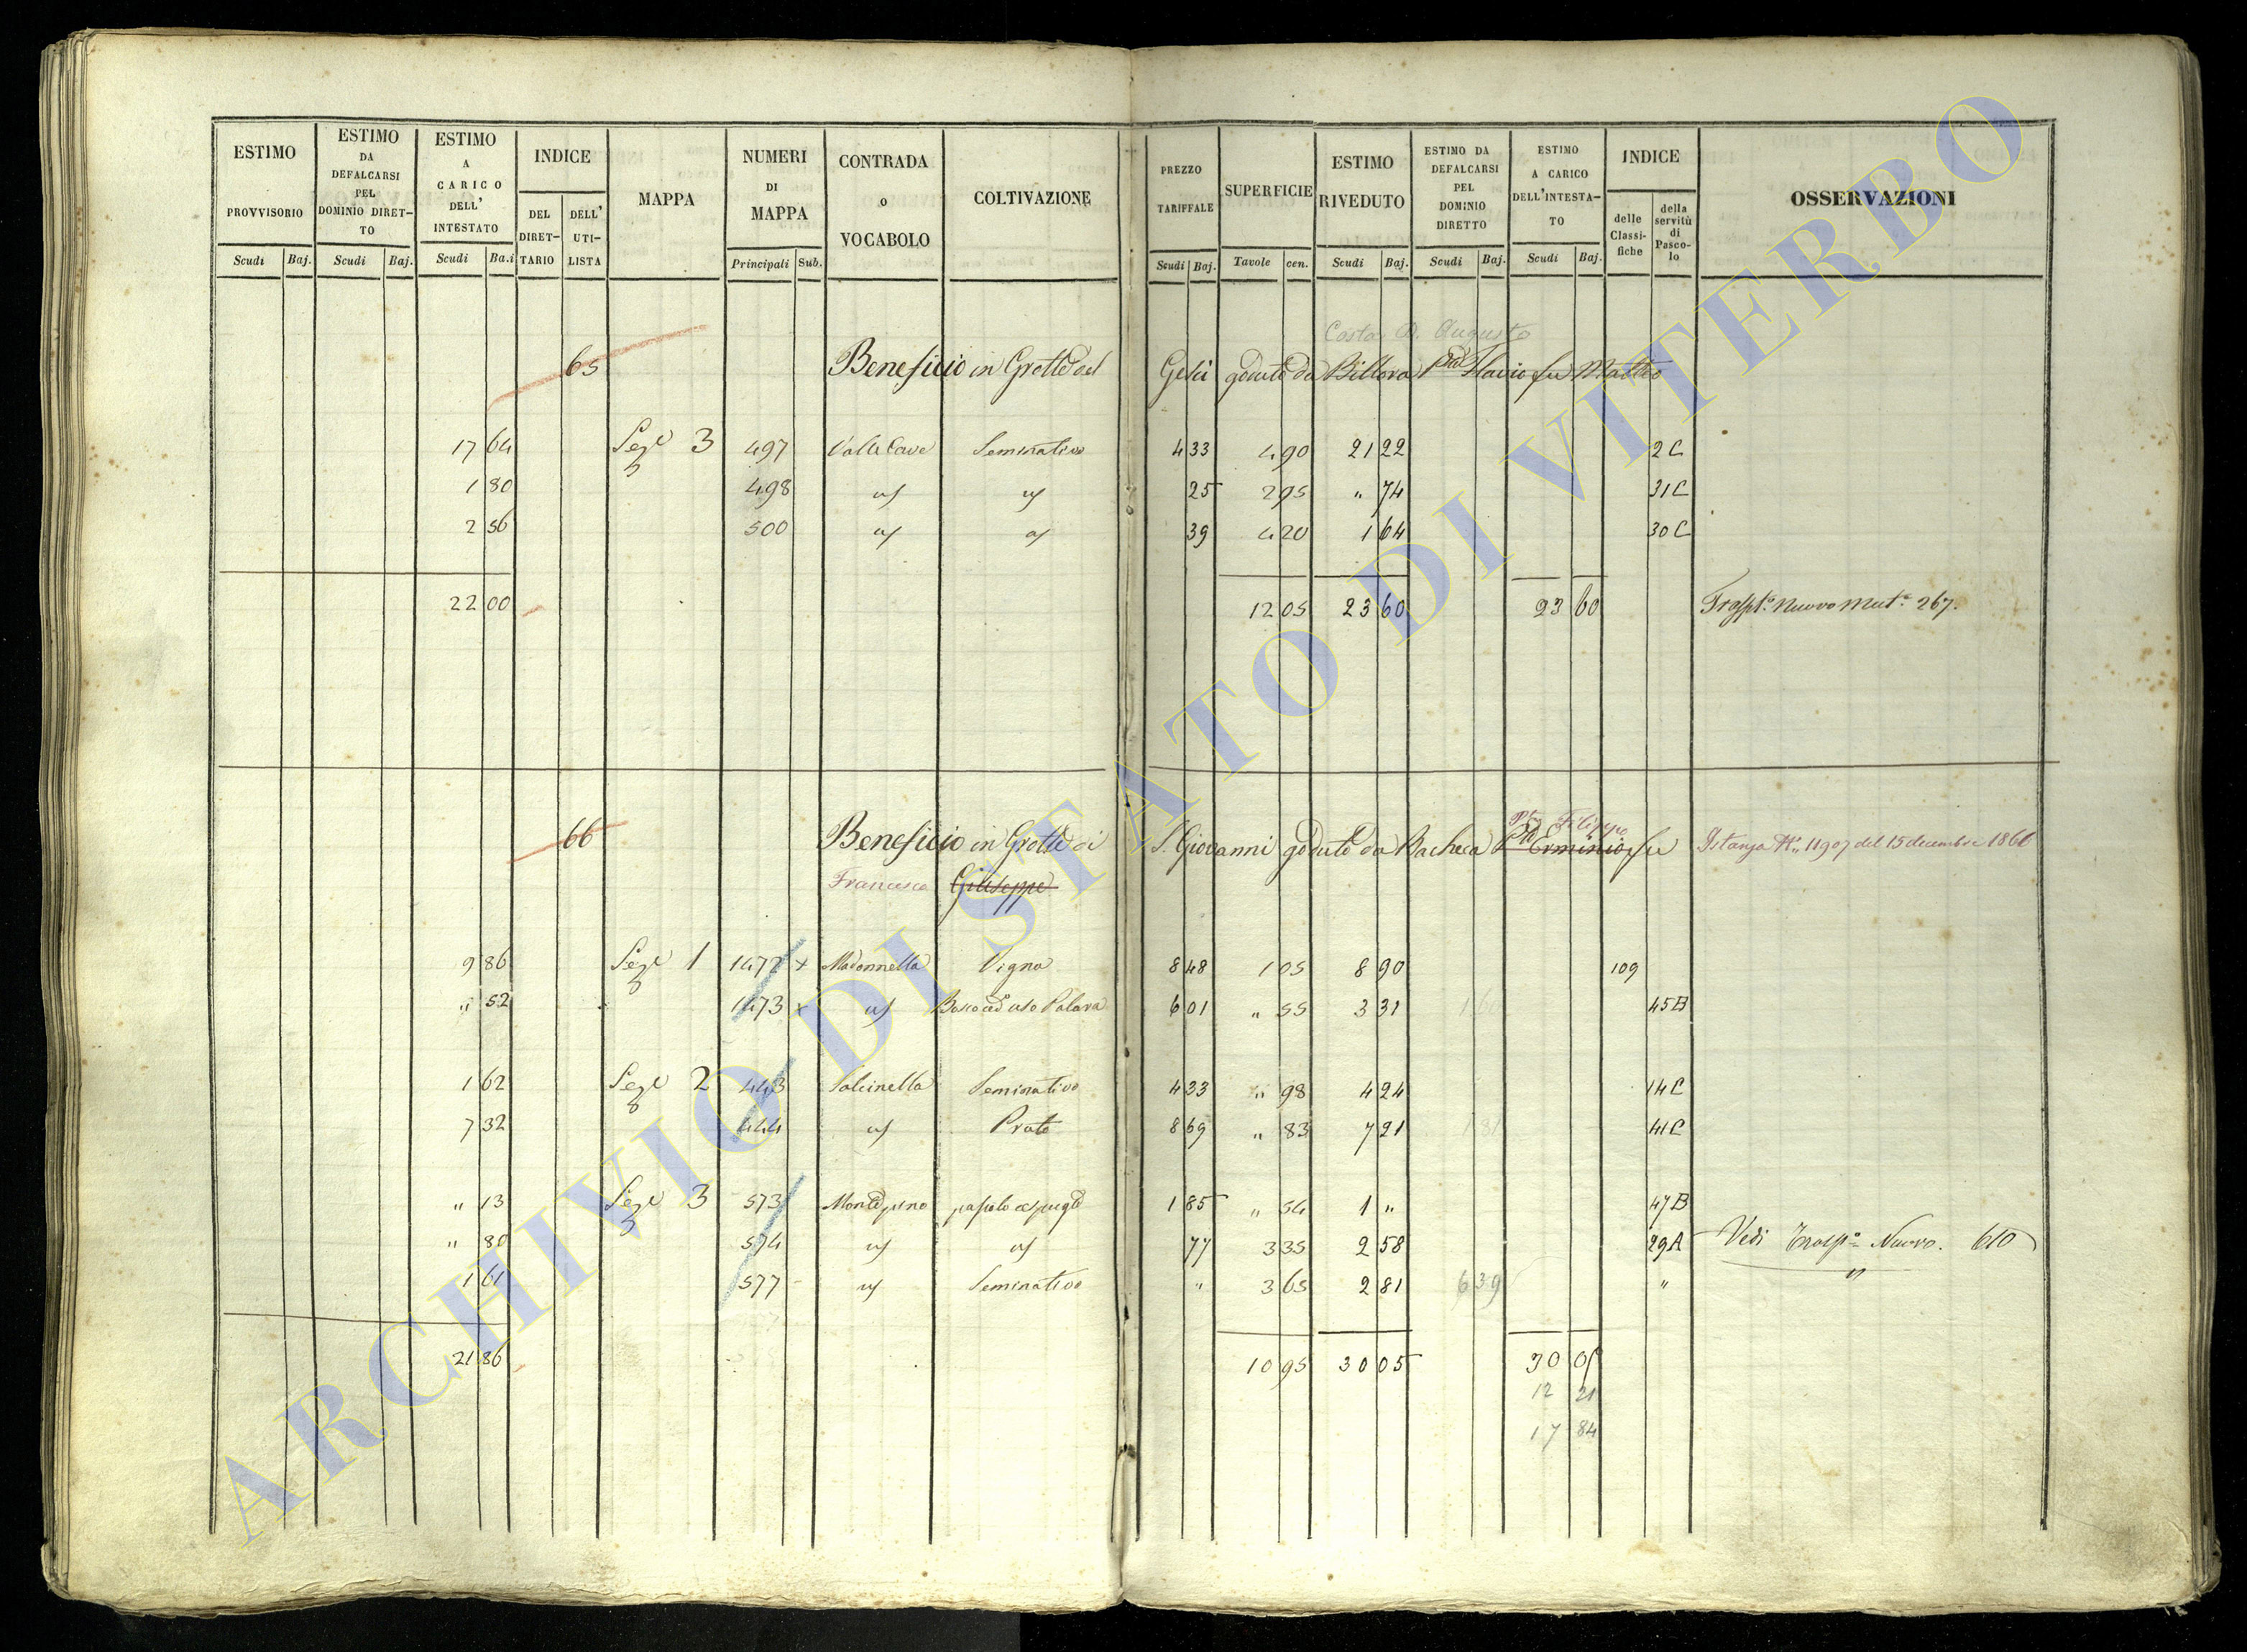 ESTIMO PROVVISORIO Scudi Baj.
ESTIMO DA DEFALCARSI PEL DOMINIO DIRETTO Scudi Baj.
ESTIMO A CARICO DELL' INTESTATO Scudi Ba.i
INDICE DEL DIRETTARIO DELL' UTILISTA
MAPPA
NUMERI DI MAPPA Principali Sub.
CONTRADA o VOCABOLO
COLTIVAZIONE
PREZZO TARIFFALE Scudi Baj.
SUPERFICIE Tavole cen.
ESTIMO RIVEDUTO Scudi Baj.
ESTIMO DA DEFALCARSI PEL DOMINIO DIRETTO Scudi Baj.
ESTIMO A CARICO DELL'INTESTATO Scudi Baj.
INDICE delle Classifiche della servitù di Pascolo
OSSERVAZIONI
Costa D. Augusto
65 Beneficio in Grotte del Gesù goduto da Billora Flavio fu Matteo
17 64 Sez.e 3 497 Valle Cave Seminativo 4 33 4 90 21 22 2C
1 80 498 25 2 95 " 74 31C
2 56 500 39 4 20 1 64 30C
22 00 12 05 23 60 23 60 Trasp.to Nuovo Mut.e 267.
Filippo
66 Beneficio in Grotte di S. Giovanni goduto da Bacheca Erminio fu Istanza N.° 11907 del 15 decembre 1866
Francesco Giuseppe
9 86 Sez.e 1 1472 x Madonnella Vigna 8 48 1 05 8 90 109
" 52 1473 x Bosco ceduo Palara 6 01 " 55 3 31 45B
1 62 Sez.e 2 443 Salcinella Seminativo 4 33 " 98 4 24 14C
7 32 444 Prato 8 69 " 83 7 21 1 81 41C
" 13 Sez.e 3 573 Monte pino pascolo cespugl.o 1 85 " 54 1 " 47B
" 80 574 77 3 35 2 58 29A Vedi Trasp.o Nuovo. 610
1 61 577 Seminativo " 3 65 2 81 6 39 "
21 86 10 95 30 05 30 05
12 21
17 84
ARCHIVIO DI STATO DI VITERBO